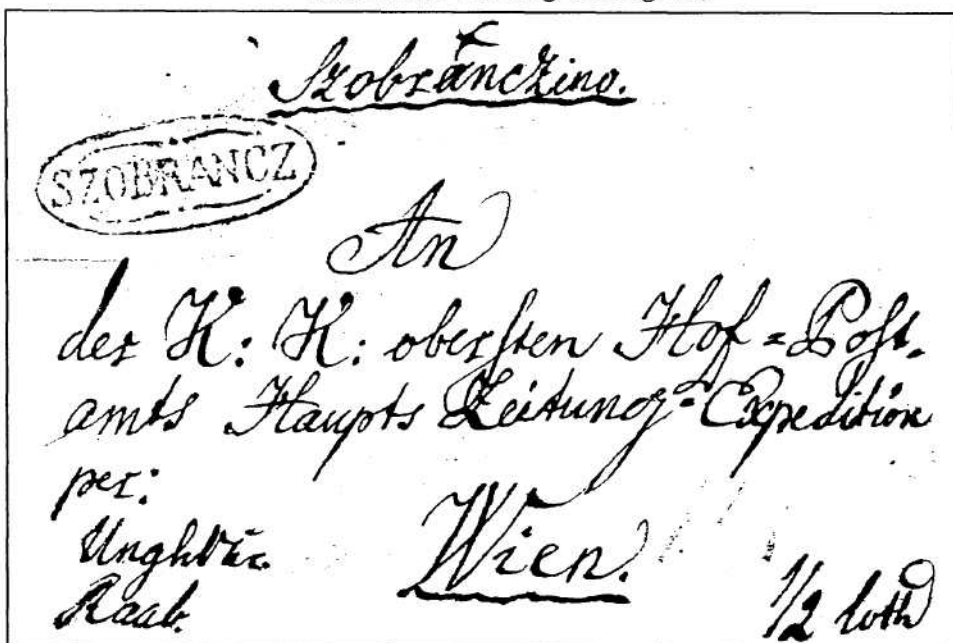 Szobránczino.
SZOBRÁNCZ
An
der K: K: obersten Hof=Post-
amts Haupts Zeitung=Expedition
per:
Unghvár.
Raab.
Wien.
1/2 loth